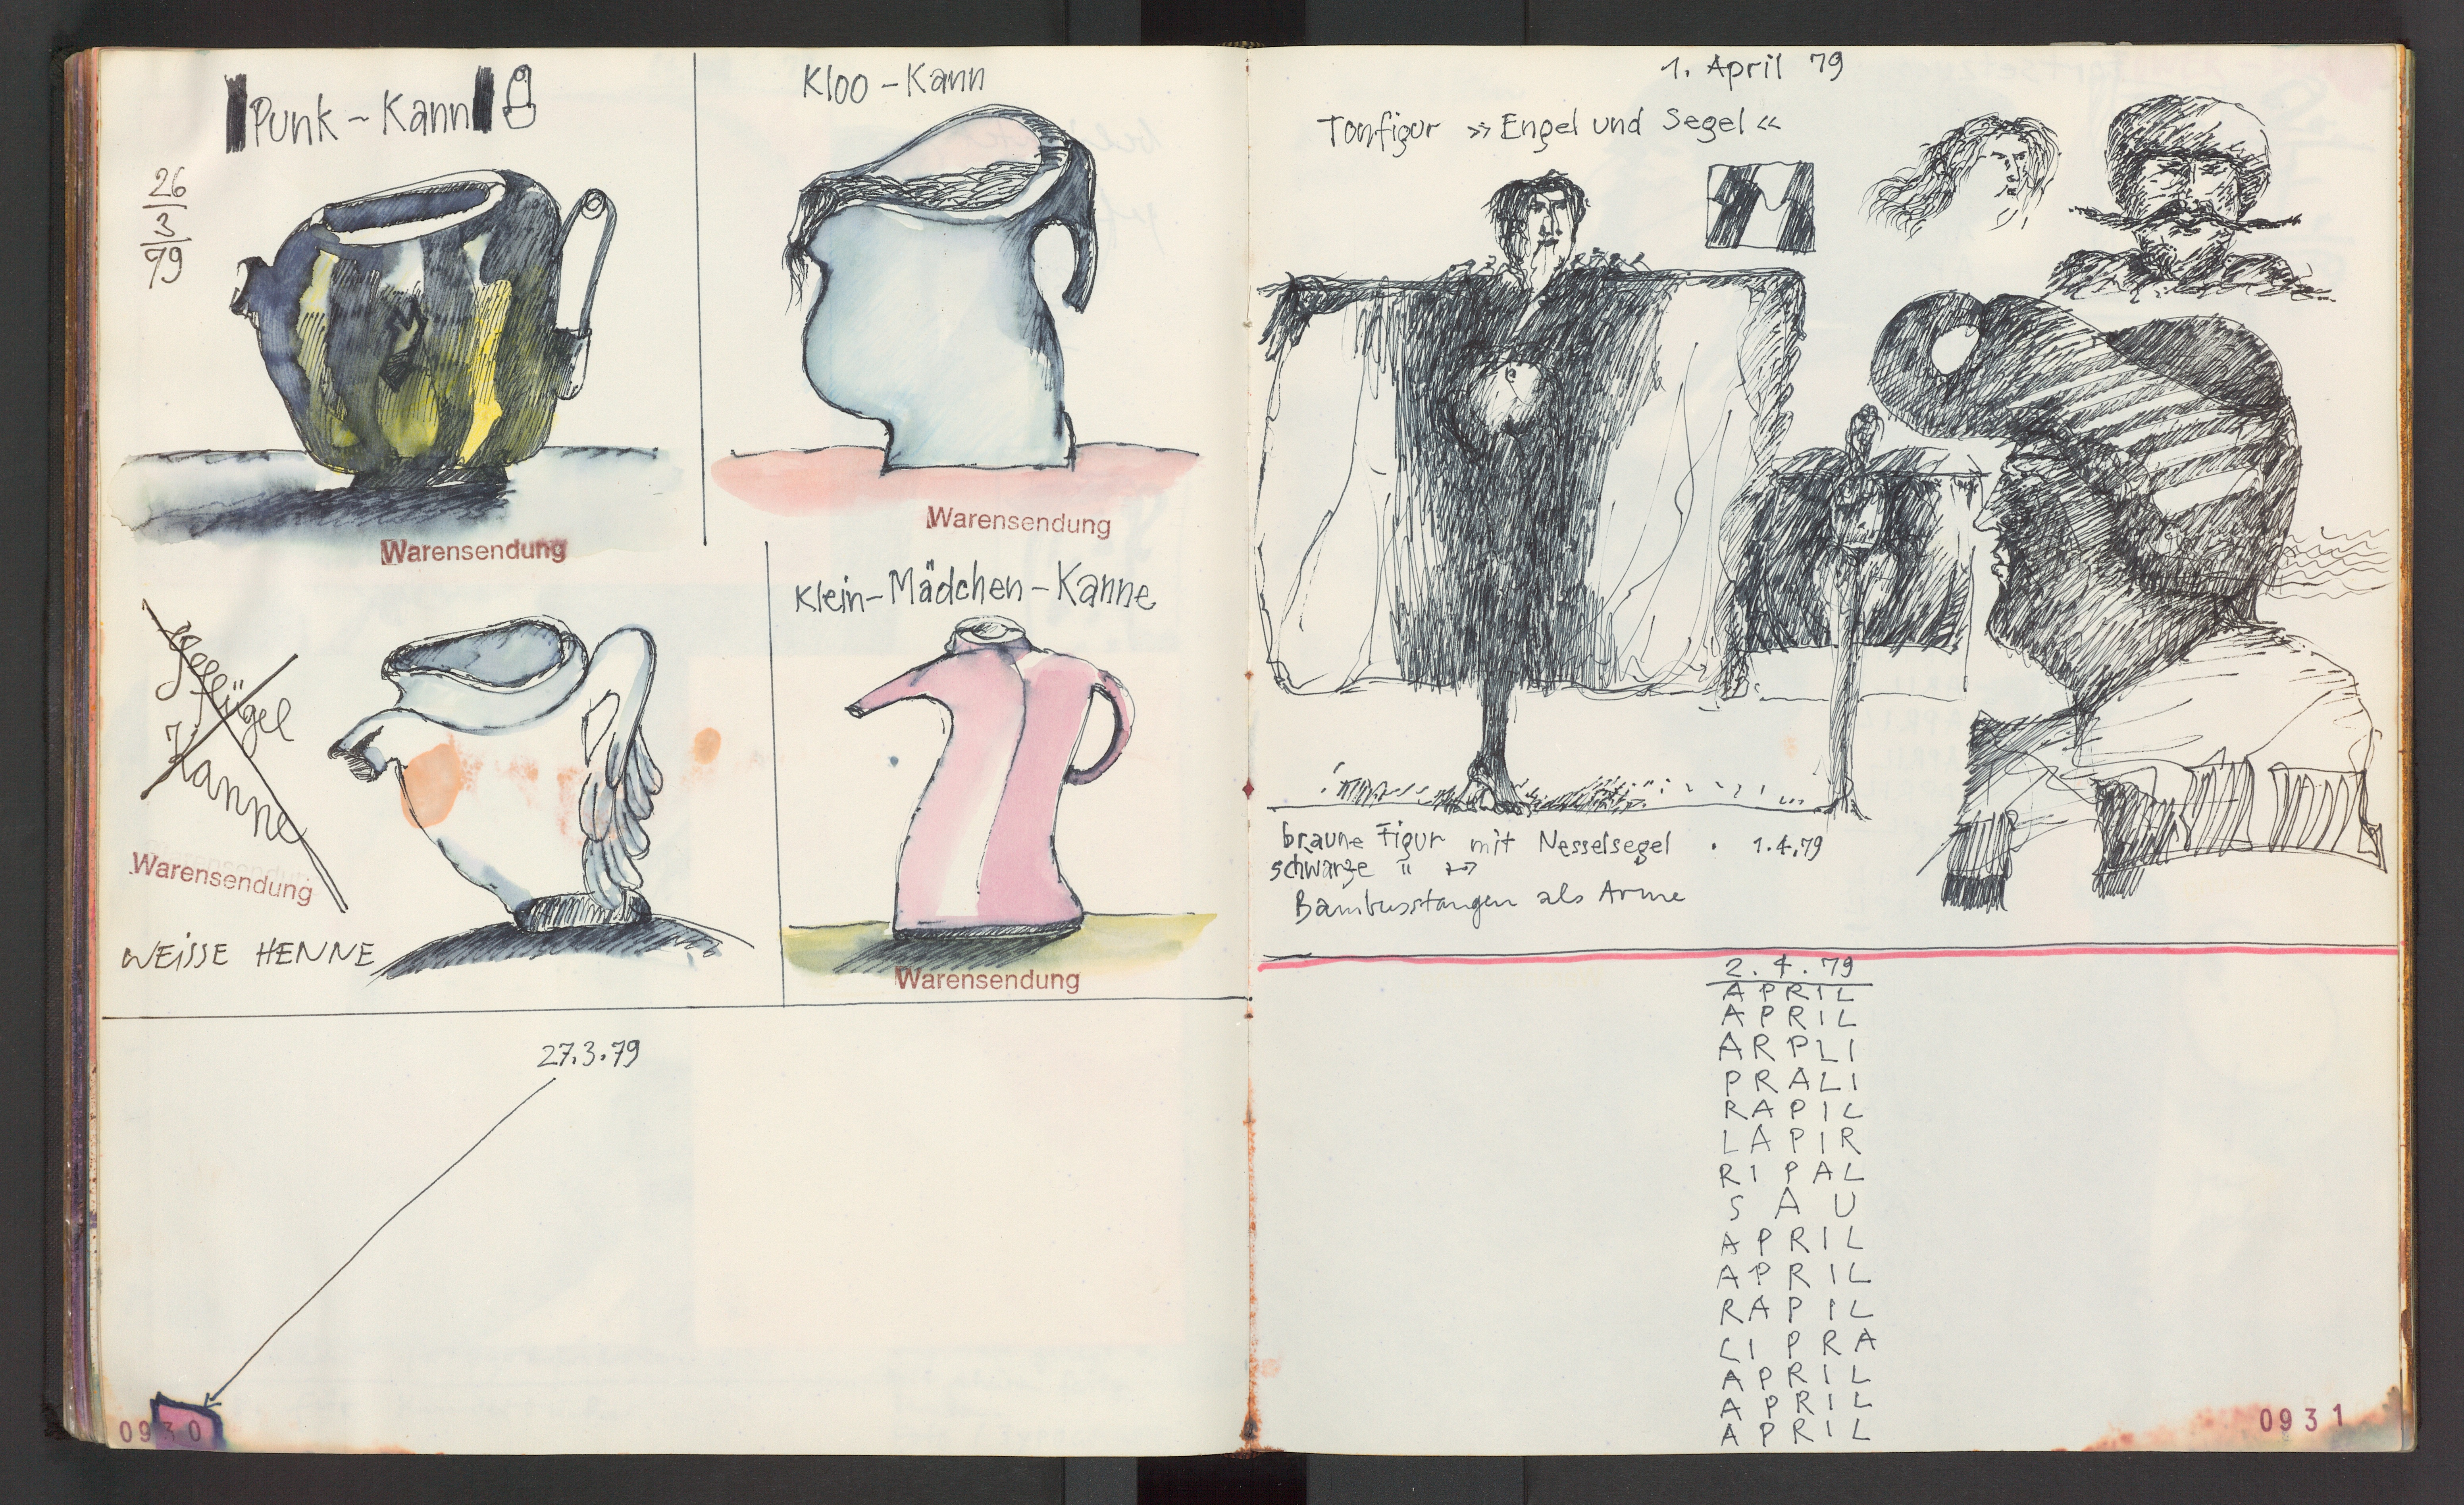 Punk - Kann
26
3
79
Warensendung
Kloo - Kann
Warensendung
Geflügel
Kanne
Warensendung
WEISSE HENNE
Klein-Mädchen-Kanne
Warensendung
27.3.79
0930
1. April 79
Tonfigur »Engel und Segel«
braune Figur mit Nesselsegel . 1.4.79
schwarze "
Bambusstangen als Arme
2.4.79
APRIL
APRIL
ARPLI
PRALI
RAPIL
LAPIR
RIPAL
SAU
APRIL
APRIL
RAPIL
LIPRA
APRIL
APRIL
APRIL
0931